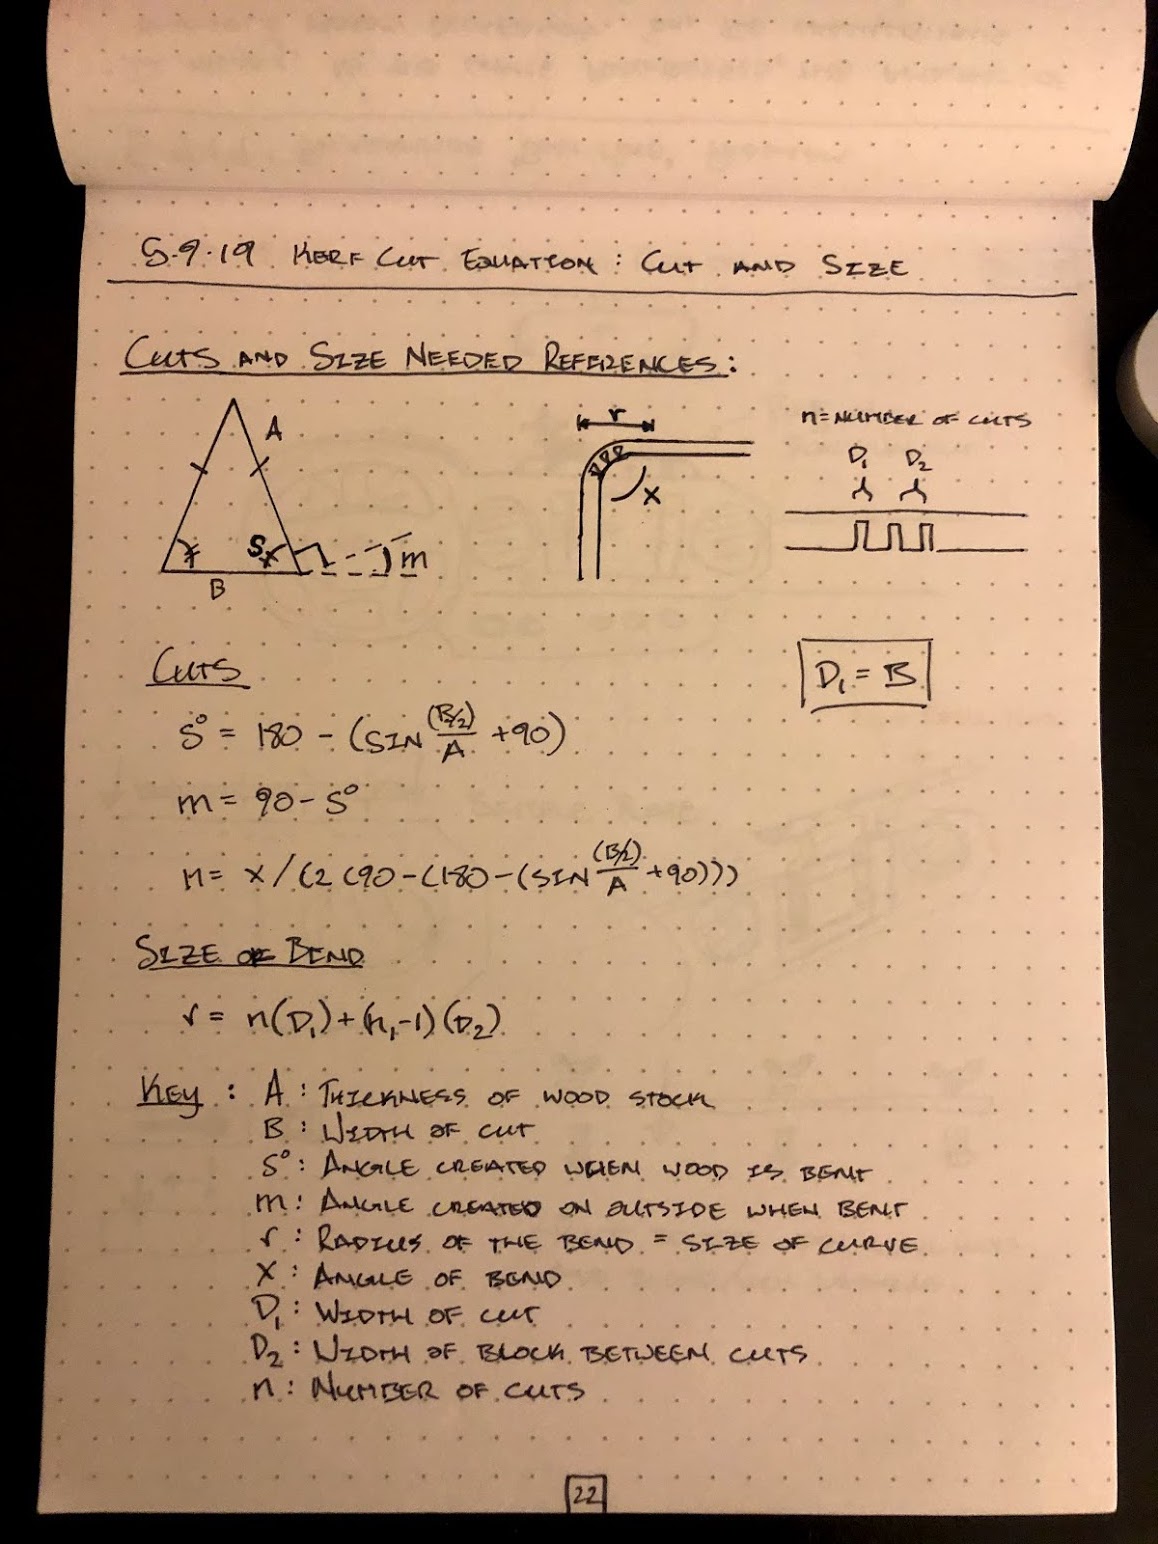 5.9.19 KERF CUT EQUATION: CUT AND SIZE
CUTS AND SIZE NEEDED REFERENCES:
A
S
B
m
r
x
n=NUMBER OF CUTS
D₁ D₂
D₁ = B
CUTS
S° = 180 - (SIN (B/2)/A +90)
m = 90 - S°
n = x / (2(90-(180-(SIN (B/2)/A +90)))
SIZE OF BEND
r = n(D₁)+(n,-1)(D₂)
KEY: A: THICKNESS OF WOOD STOCK
B: WIDTH OF CUT
S°: ANGLE CREATED WHEN WOOD IS BENT
m: ANGLE CREATED ON OUTSIDE WHEN BENT
r: RADIUS OF THE BEND = SIZE OF CURVE
X: ANGLE OF BEND
D₁: WIDTH OF CUT
D₂: WIDTH OF BLOCK BETWEEN CUTS
n: NUMBER OF CUTS
22